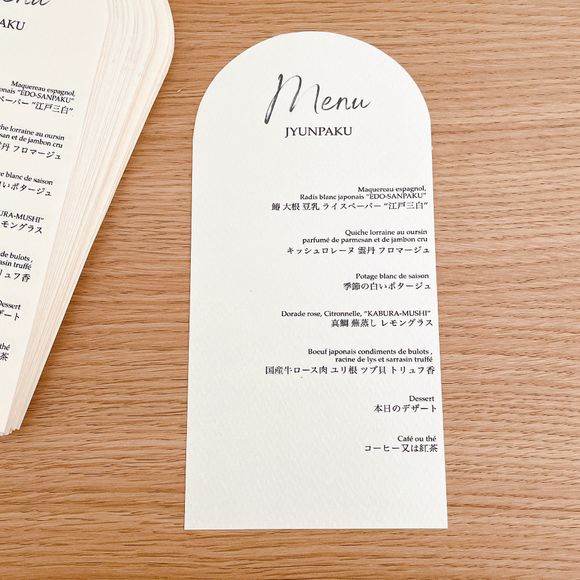 Menu
AKU
Maquereau espagnol,
onais "ÉDO-SANPAKU"
スペーパー "江戸三白"
che lorraine au oursin
san et de jambon cru
雲丹 フロマージュ
e blanc de saison
の白いポタージュ
KABURA-MUSHI"
レモングラス
de bulots ,
sarrasin truffé
トリュフ香
Dessert
デザート
é ou thé
は紅茶
Menu
JYUNPAKU
Maquereau espagnol,
Radis blanc japonais "ÉDO-SANPAKU"
鰆 大根 豆乳 ライスペーパー "江戸三白"
Quiche lorraine au oursin
parfumé de parmesan et de jambon cru
キッシュロレーヌ 雲丹 フロマージュ
Potage blanc de saison
季節の白いポタージュ
Dorade rose, Citronnelle, "KABURA-MUSHI"
真鯛 蕪蒸し レモングラス
Boeuf japonais condiments de bulots ,
racine de lys et sarrasin truffé
国産牛ロース肉 ユリ根 ツブ貝 トリュフ香
Dessert
本日のデザート
Café ou thé
コーヒー又は紅茶